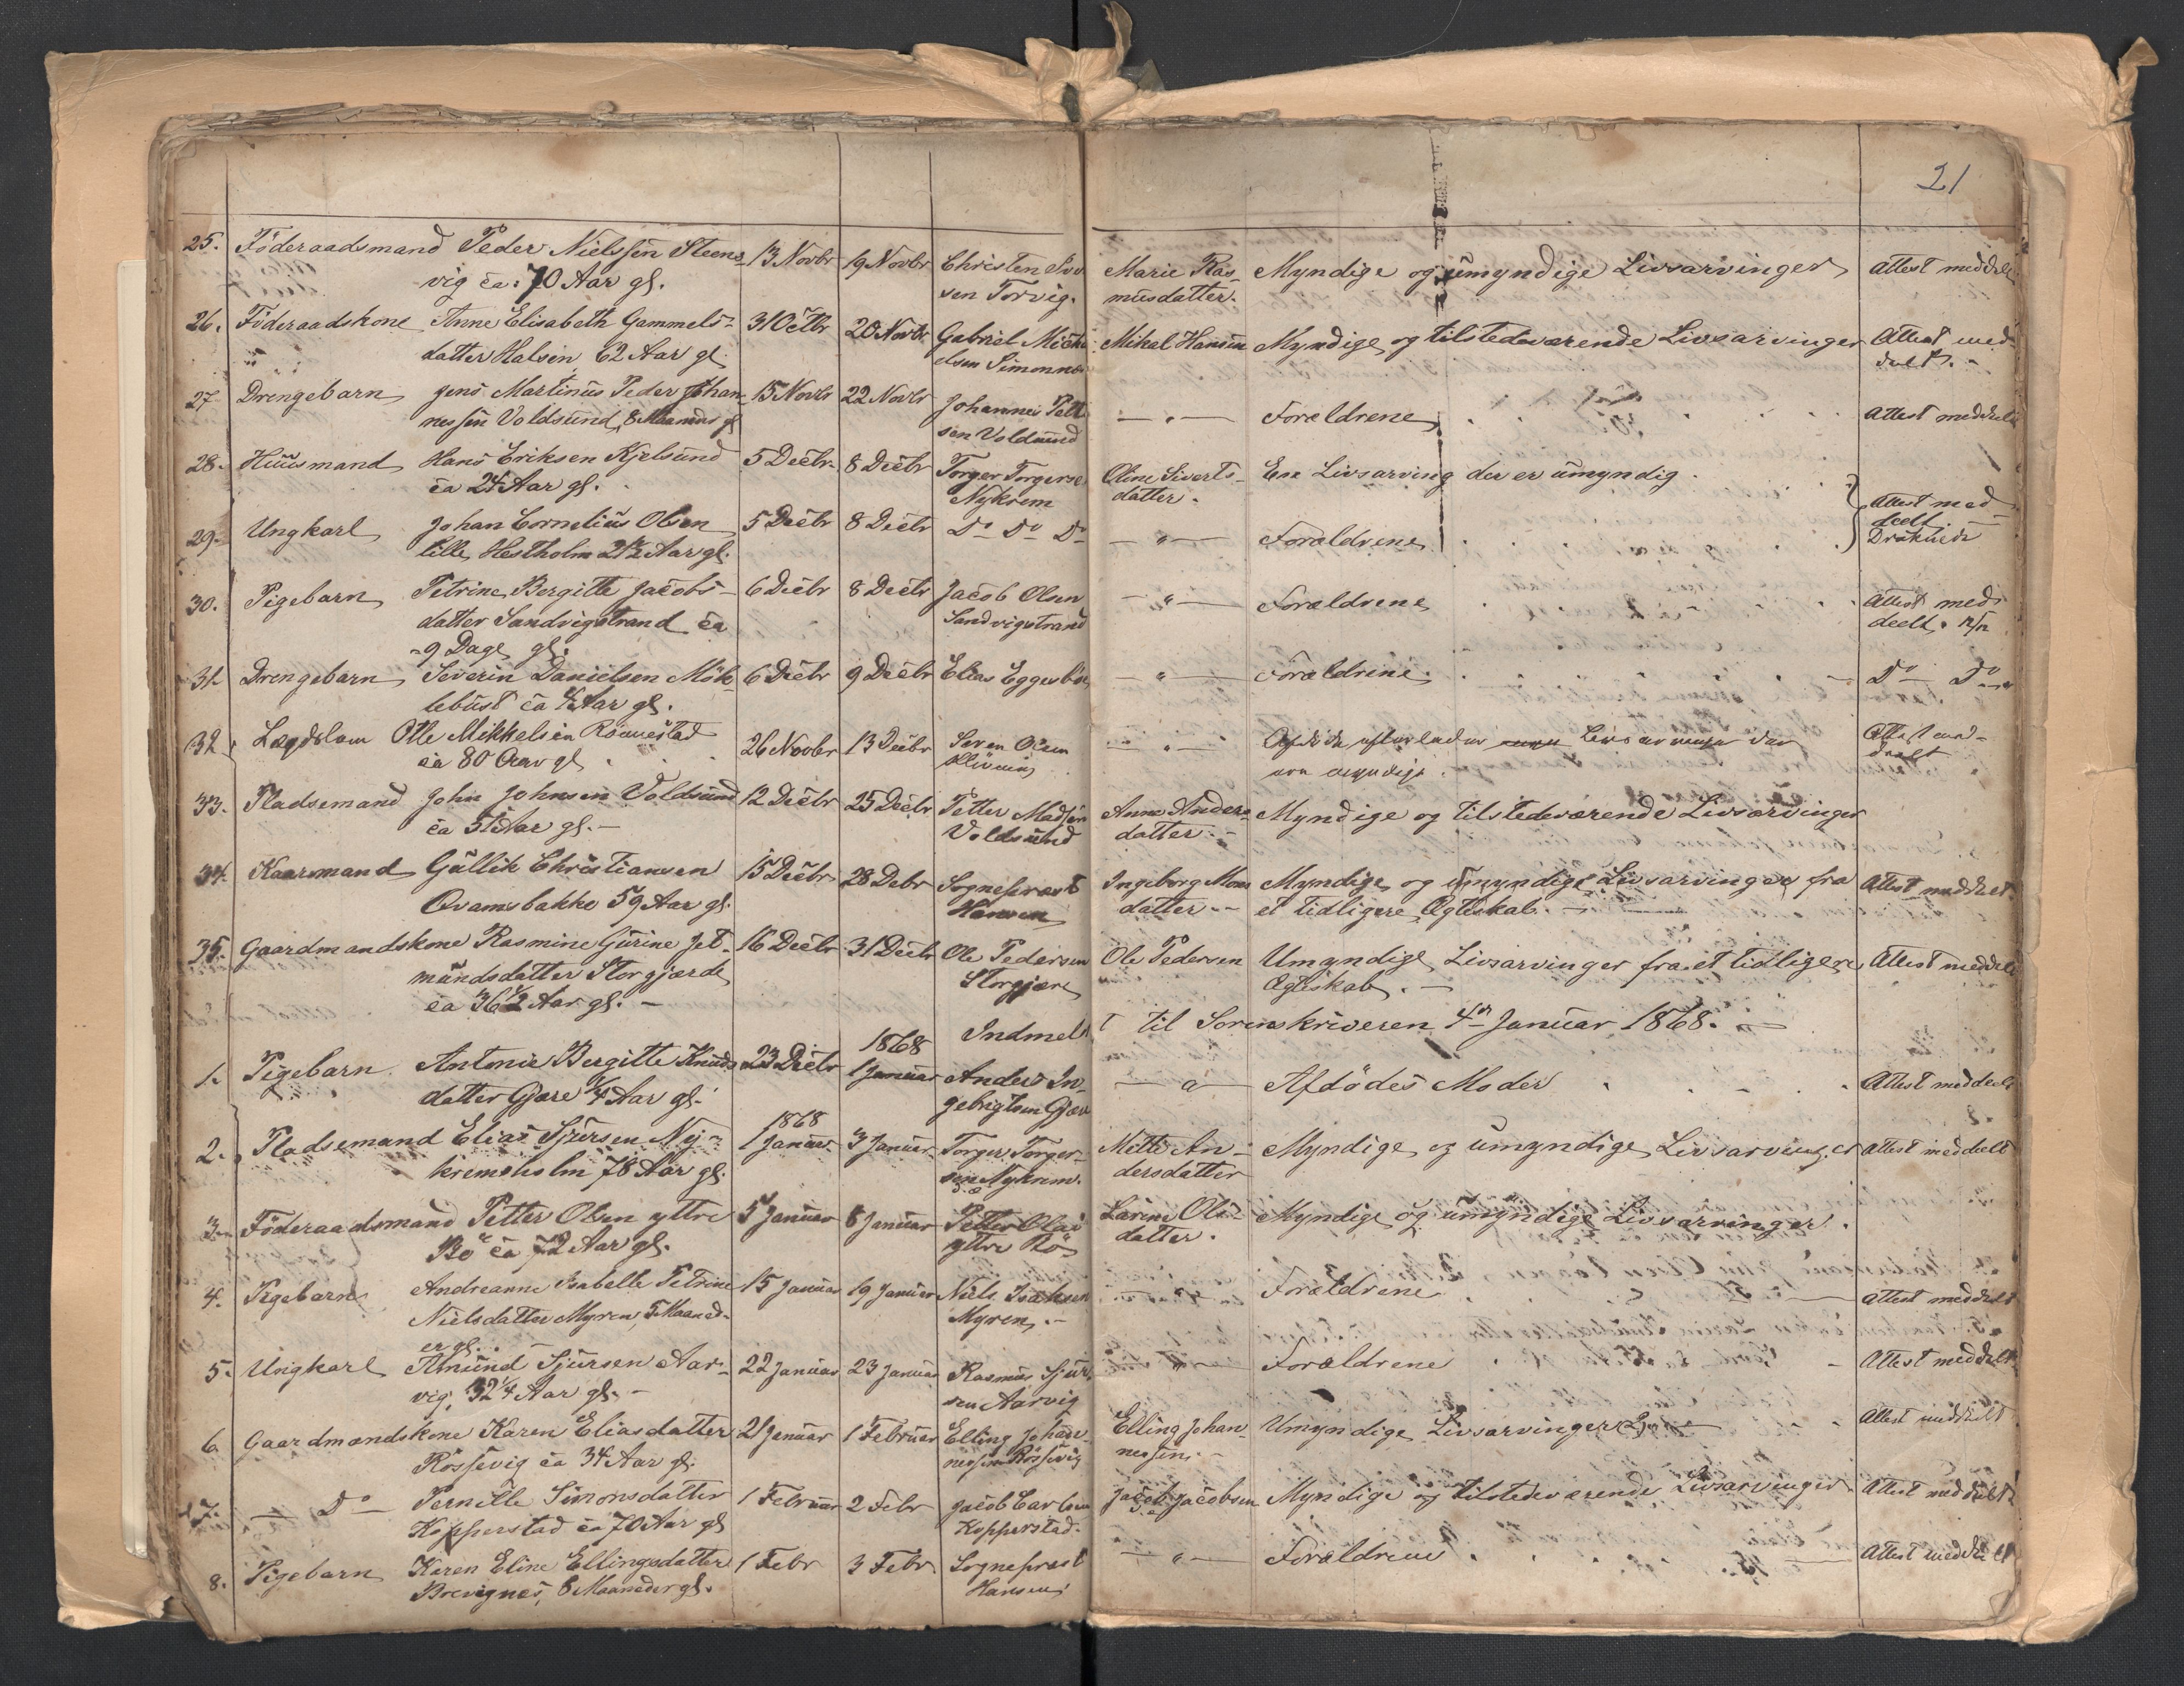 21
25. Föderaadsmand Peder Nielssen Steens- 13 Novbr 19 Novbr Christen Marie Ras- Myndige og umyndige Livsarvinger Attest meddelt
vig ca. 70 Aar gl. sen Torvig. musdatter.
26. Föderaadskone Anne Elisabeth Gammels- 31 Octbr 20 Novbr Gabriel Mikal Hansen Myndige og tilstedeværende Livsarvinger Attest med-
datter Halsen, 62 Aar gl. elsen deelt. -
27 Drengebarn Jens Martinus Peder Johan- 15 Novbr 22 Novbr Johannes Pett - " - Forældrene Attest meddelt
nessen Voldsund, 8 Maaneds gl sen Voldsund
28. Huusmand Hans Eriksen Kjelsund 5 Decbr. 8 Decbr Torger Torgerse Oline Siverts- En Livsarving der er umyndig.
ca 24 Aar gl. Nykrem datter. Attest med-
29. Ungkarl Johan Cornelius Olsen 5 Decbr 8 Decbr Do Do Do - " - Forældrene deelt.
lille Hestholm 21½ Aar gl. Druknede
30. Pigebarn Petrine Bergitte Jacobs- 6 Decbr 8 Decbr Jacob Olsen - " - Forældrene Attest med-
datter Sandvigstrand ca Sandvigstrand deelt. 12/12
9 Dage gl.
31. Drengebarn Severin Danielsen Mök- 6 Decbr 9 Decbr Elias Eggesbö - " - Forældrene. Do Do
lebust ca ¼ Aar gl.
32. Lægdslem Ole Mikkelsen 26 Novbr 13 Decbr Søren Olsen - " - Afdøde efterlader Livsarvinger der Attest med-
ca 80 Aar gl ere myndige. deelt
33. Pladsemand John Johnsen Voldsund 12 Decbr 25 Decbr Petter Madsen Anne Anders- Myndige og tilstedeværende Livsarvinger
ca 51 Aar gl. - Voldsund datter. -
34. Kaarmand Gullik Christiansen 15 Decbr 28 Debr Sognepræst Ingeborg Mons Myndige og umyndige Livsarvinger fra Attest meddelt
Qvamsbakke 59 Aar gl. Hansen datter. - et tidligere Ægteskab. -
35. Gaardmandskone Rasmine Gurine Jet- 16 Decbr 31 Decbr Ole Pedersen Ole Pedersen Umyndige Livsarvinger fra et tidligere Attest meddelt
mundsdatter Storgjærde Storgjære Ægteskab. -
ca 36½ Aar gl. -
1868 Indmeldt til Sorenskriveren 4de Januar 1868. -
1. Pigebarn Antonie Bergitte Knuds 23 Decbr 1 Januar Anders In- - " - Afdødes Moder Attest meddeelt
datter Gjære ¼ Aar gl. gebrigtsen Gjære
1868
2. Pladsemand Elias Sjursen Ny- 1 Januar 3 Januar Torger Torger- Mette An- Myndige og umyndige Livsarvinger Attest meddeelt
kremsholm 78 Aar gl. sen Nykrem. dersdatter
3. Föderaadsmand Petter Olsen yttre 5 Januar 8 Januar Petter Olai Larine Ols- Myndige og umyndige Livsarvinger.
Bö ca 72 Aar gl. yttre Bö datter.
4. Pigebarn Andreanne Isabelle Petrine 15 Januar 19 Januar Niels Isaksen " Forældrene Attest meddelt
Nielsdatter Myren, 5 Maaned- Myren. -
er gl.
5. Ungkarl Amund Sjursen Aar- 22 Januar 23 Januar Rasmus Sjur- " Forældrene Attest meddelt
vig, 32¼ Aar gl. - sen Aarvig
6. Gaardmandskone Karen Eliasdatter 21 Januar 1 Februar Elling Johan- Elling Johan- Umyndige Livsarvinger Attest meddelt
Rössevig ca 34 Aar gl. nessen Rössevig nessen. -
7. - Do - Pernille Simonsdatter 1 Februar 2 Febr Jacob Carlsen Jacob Jacobsen Myndige og tilstedeværende Livsarvinger Attest meddelt
Kopperstad ca 70 Aar gl Kopperstad.
8. Pigebarn Karen Eline Ellingsdatter 1 Febr 3 Febr Sognepræst - " - Forældrene Attest meddelt
Brevignes, 8 Maaneder gl. Hansen